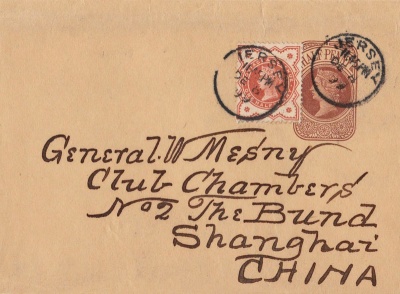 JERSEY
JERSEY
General. W Mesny
Club Chambers
No 2 The Bund
Shanghai
CHINA